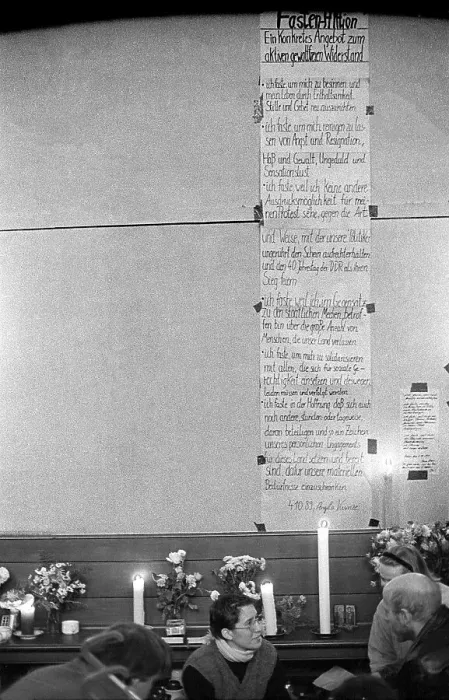 Fasten-Aktion
Ein Konkretes Angebot zum
aktiven gewaltfreien Widerstand
· ich faste, um mich zu besinnen und
mein Leben durch Enthaltsamkeit,
Stille und Gebet neu auszurichten.
· ich faste, um mich reinigen zu las-
sen von Angst und Resignation,
Haß und Gewalt, Ungeduld und
Sensationslust
· ich faste weil ich keine andere
Ausdrucksmöglichkeit für mei-
nen Protest sehe, gegen die Art
und Weise, mit der unsere Politiker
ungerührt den Schein aufrechterhalten
und den 40. Jahrestag der DDR als ihren
Sieg feiern
· ich faste weil ich im Gegensatz
zu den staatlichen Medien betrof-
fen bin über die große Anzahl von
Menschen, die unser Land verlassen
· ich faste, um mich zu solidarisieren
mit allen, die sich für soziale Ge-
rechtigkeit einsetzen und deswegen
leiden müssen und verfolgt werden
· ich faste in der Hoffnung, daß sich auch
noch andere, stunden- oder tageweise,
daran beteiligen und so ein Zeichen
unseres persönlichen Engagements
für dieses Land setzen und bereit
sind, dafür unsere materiellen
Bedürfnisse einzuschränken.
4.10.89, Angela Kunze